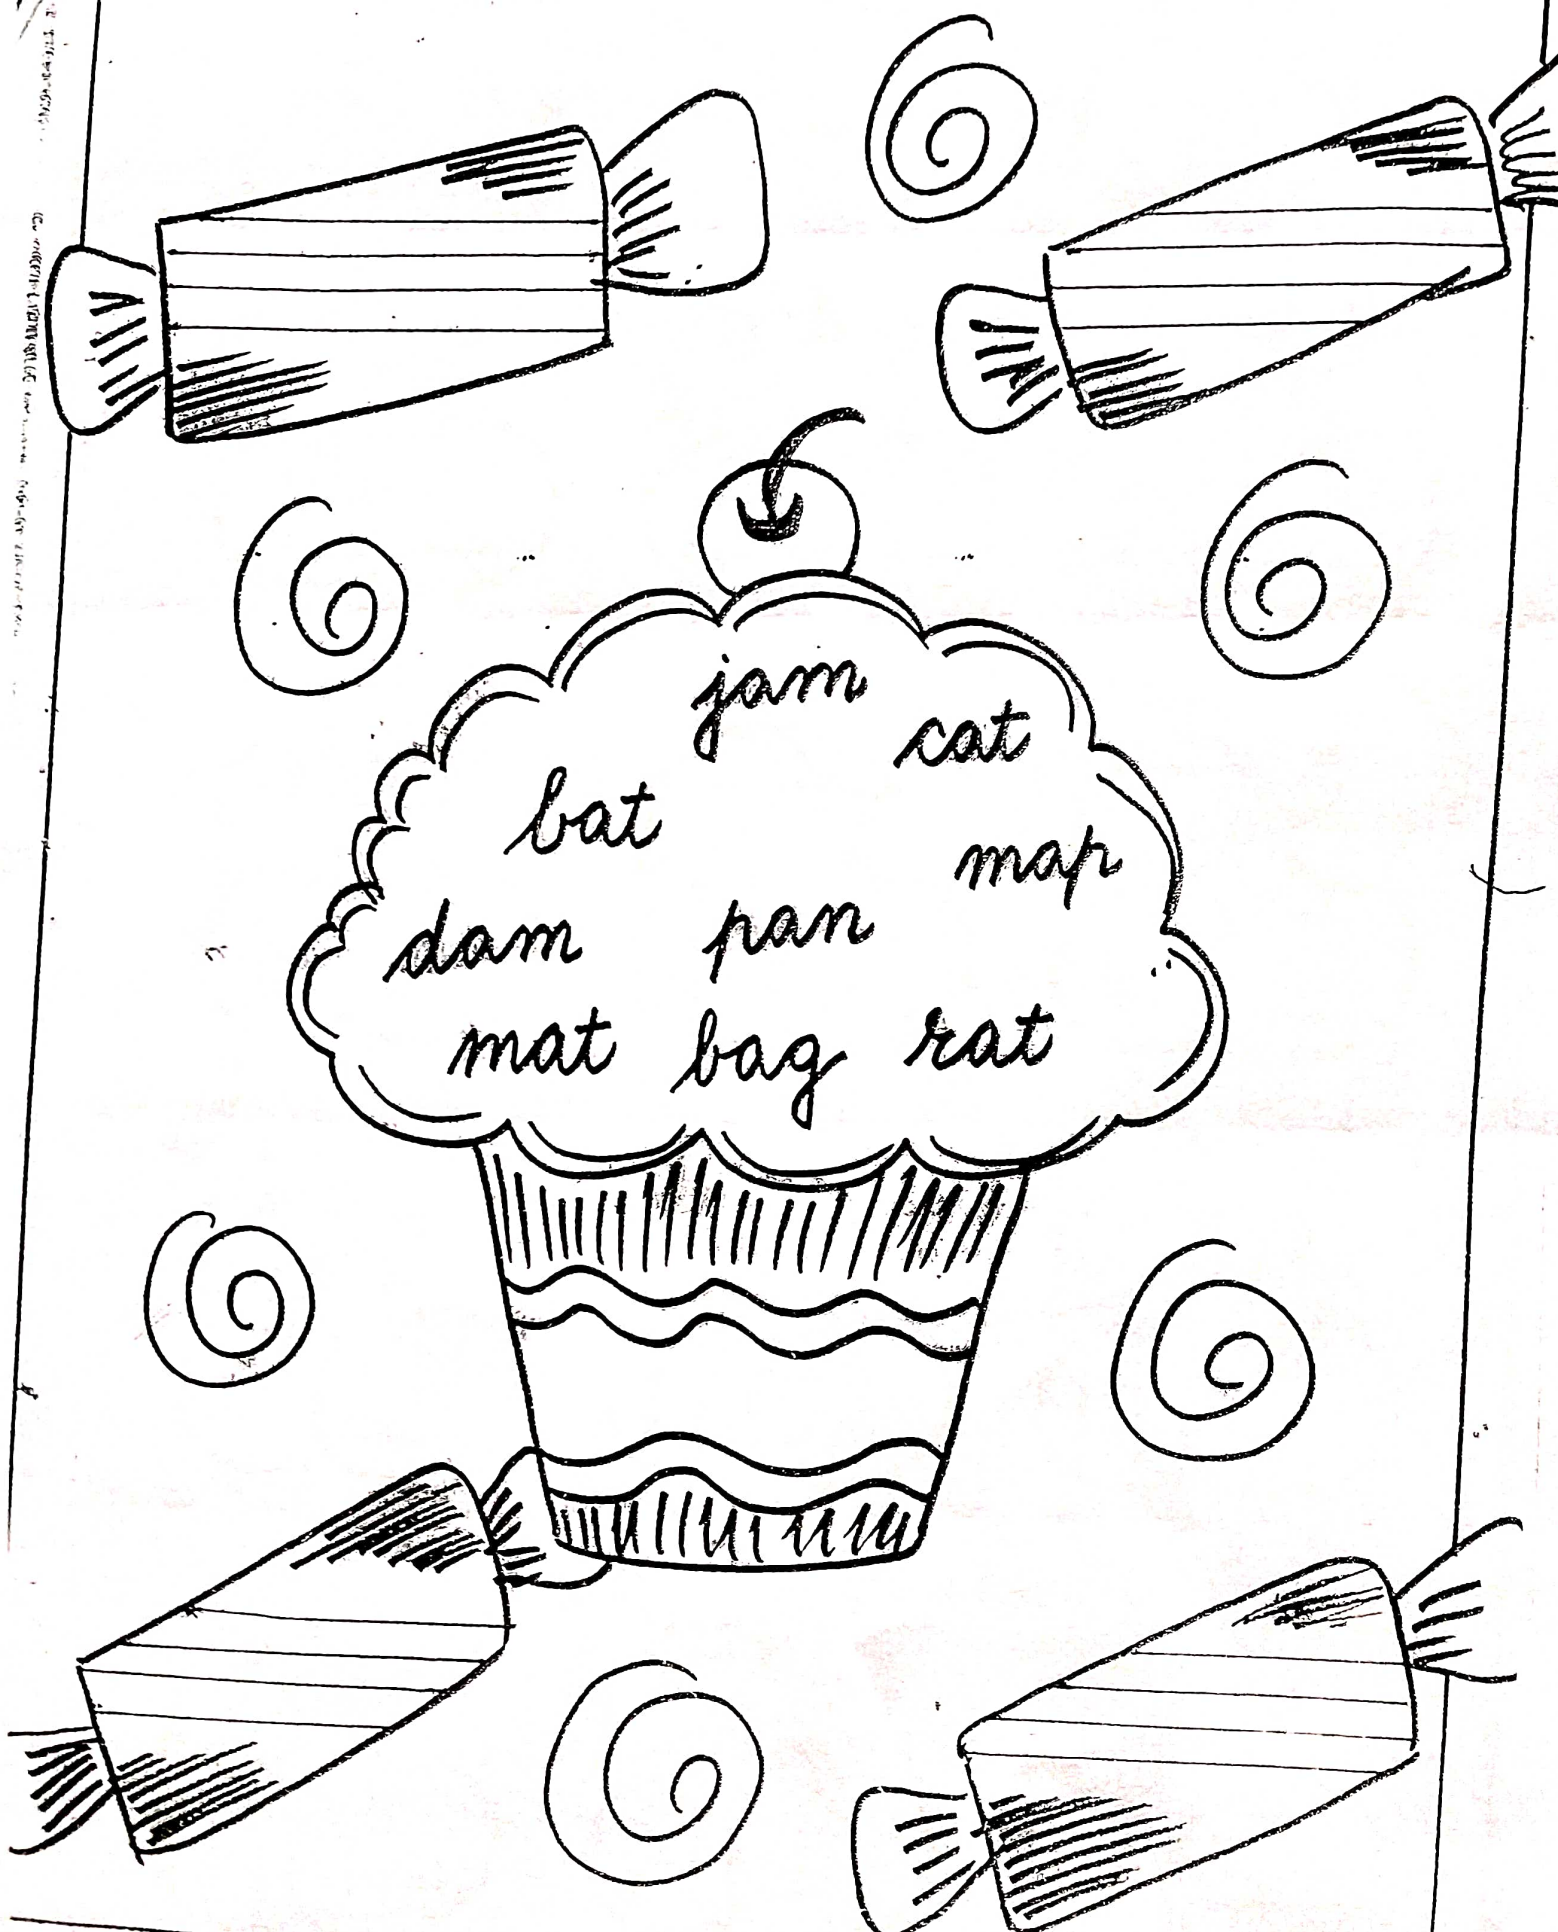 jam
cat
bat
map
dam pan
mat bag rat